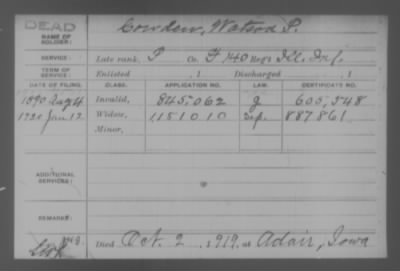 DEAD
NAME OF SOLDIER: Cowden, Watson P.
SERVICE: Late rank, P Co. F 140 Reg't Ill. Inf.
TERM OF SERVICE: Enlisted , 1 Discharged , 1
DATE OF FILING. CLASS. APPLICATION NO. LAW. CERTIFICATE NO.
1890 Aug 4 Invalid, 845,062 J 605,548
1920 Jan 12 Widow, 1151010 Sep. 887,861
Minor,
ADDITIONAL SERVICES:
REMARKS:
Died Oct. 2, 1919, at Adair, Iowa